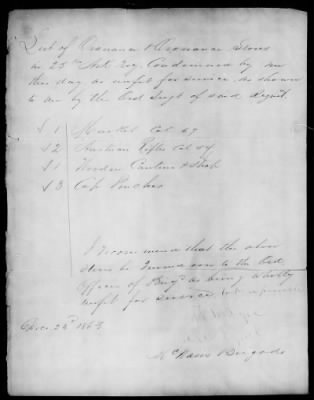 List of Ordnance & Ordnance Stores
in 25th Ark Regt. Condemned by me
this day as unfit for service, as shown
to me by the Ord Sergt of said Regmt.
1 Musket Cal 69
2 Austrian Rifles Cal 54
1 Wooden Canteen & Strap
3 Cap Pouches
I recommend that the above
Stores be turned over to the Ord
Officer of Brigd as being wholly
unfit for service
24th 1863
McNairs Brigade